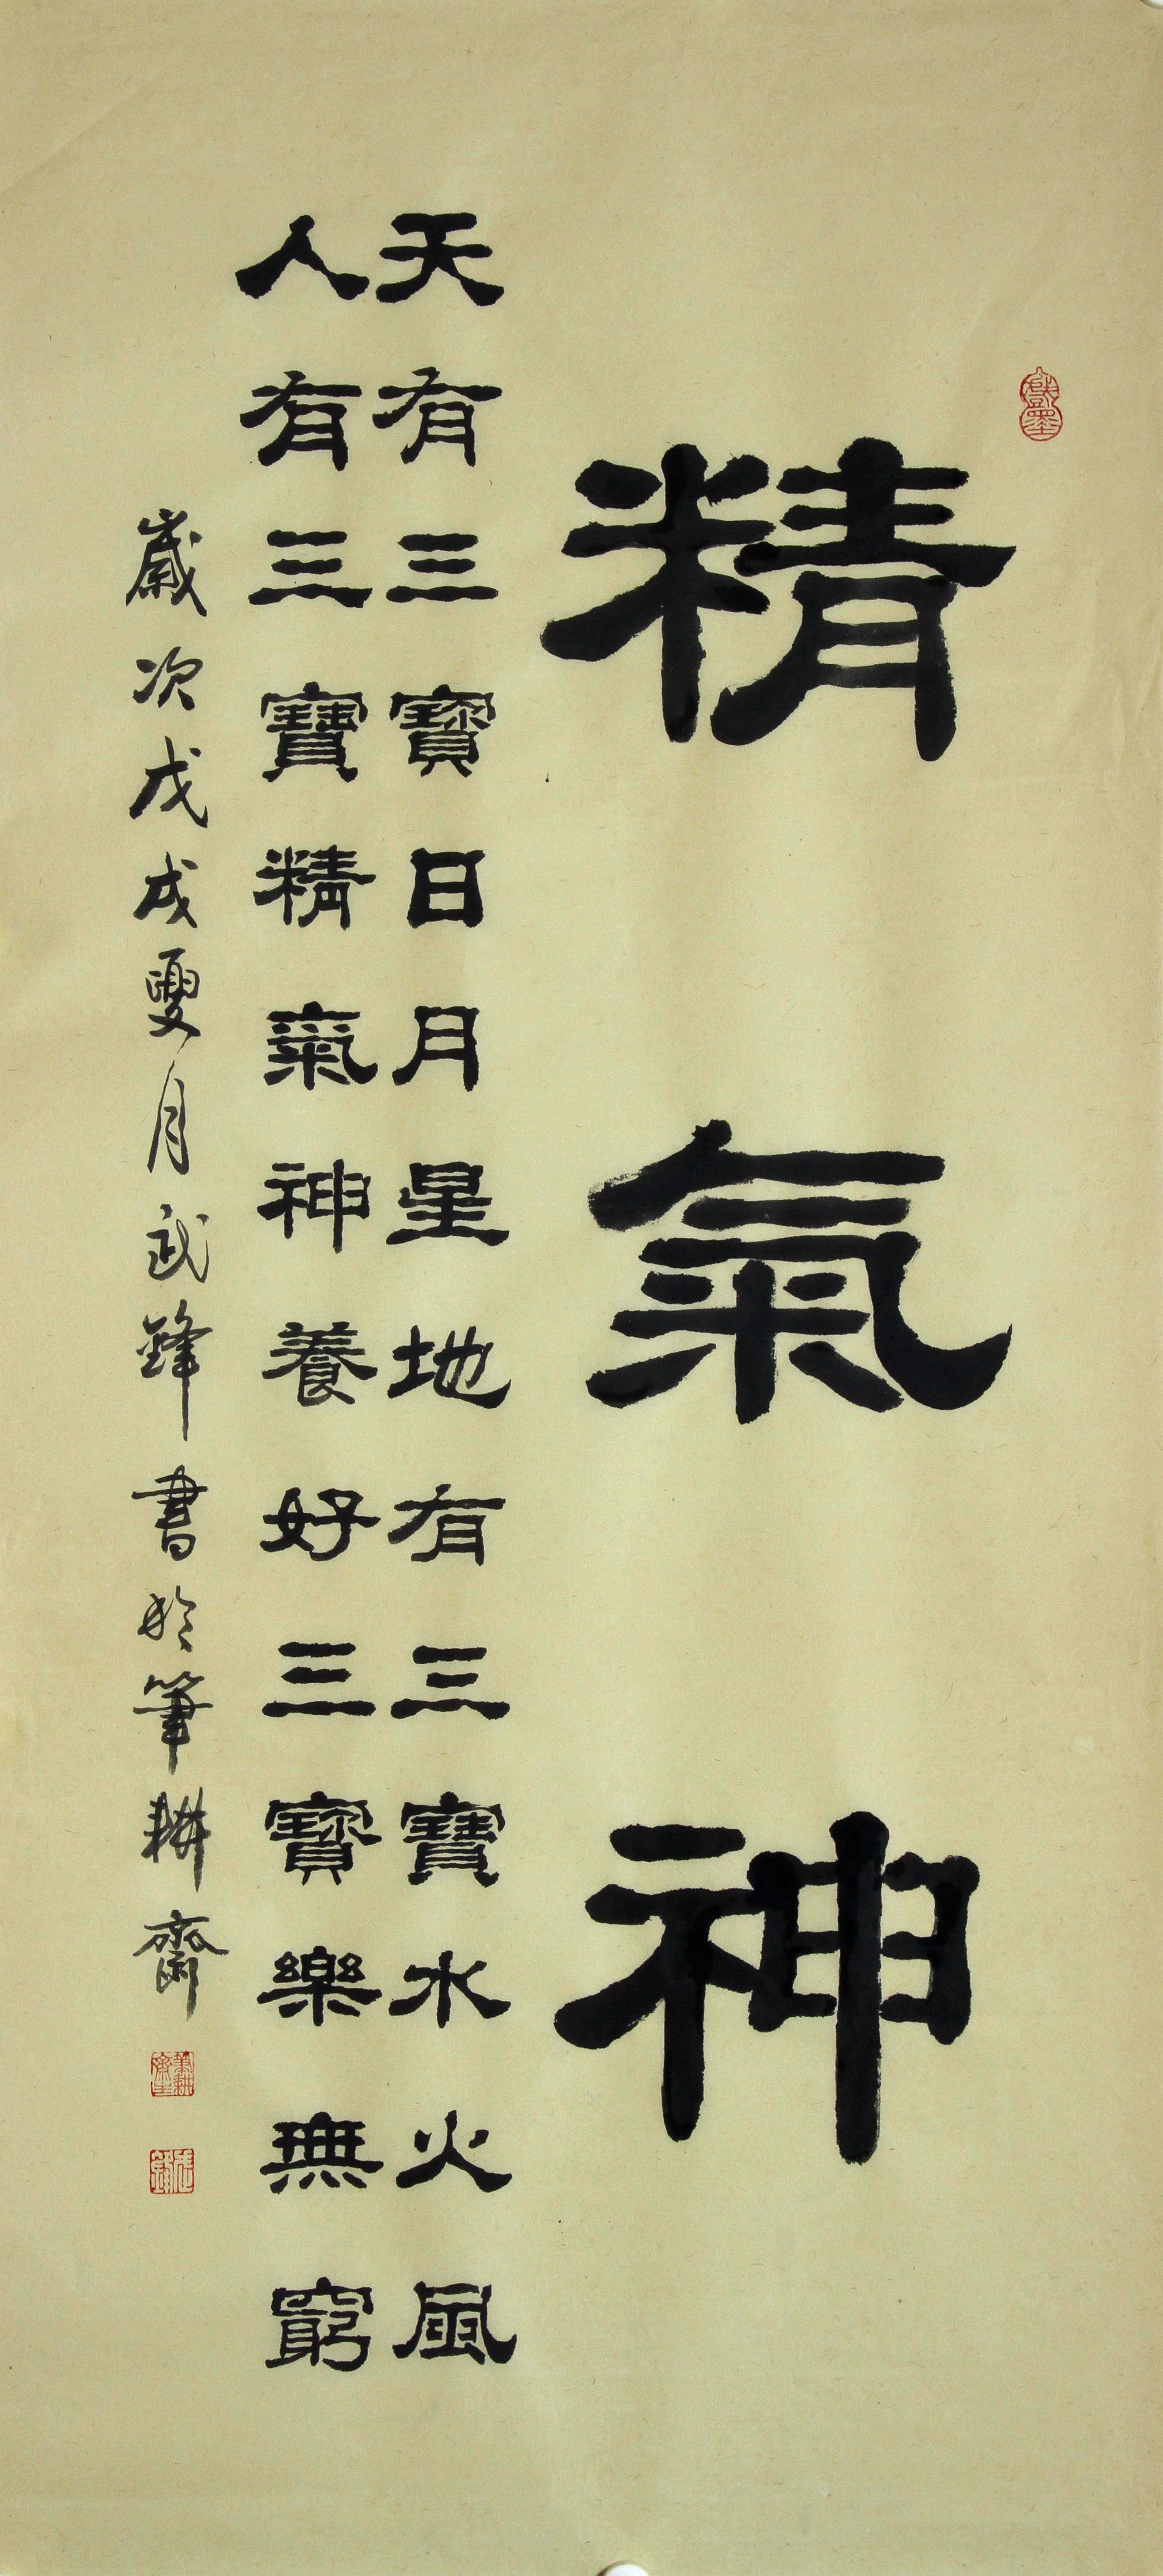 精氣神
天有三寶日月星地有三寶水火風
人有三寶精氣神養好三寶樂無窮
歲次戊戌夏月武鋒書於筆耕齋